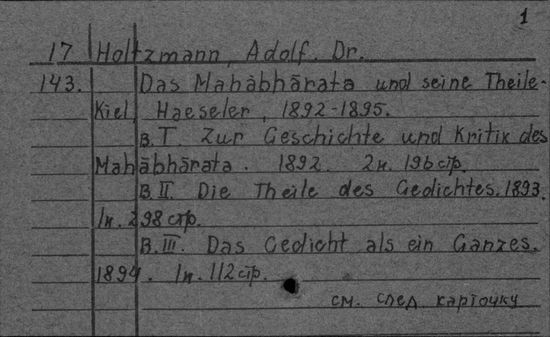 1
17 Holtzmann, Adolf. Dr.
143. Das Mahābhārata und seine Theile.
Kiel, Haeseler, 1892-1895.
B.I. Zur Geschichte und Kritik des
Mahābhārata. 1892. 2н. 196 стр.
B.II. Die Theile des Gedichtes. 1893.
1н. 298 стр.
B.III. Das Gedicht als ein Ganzes.
1894. 1н. 112 стр.
см. след карточку